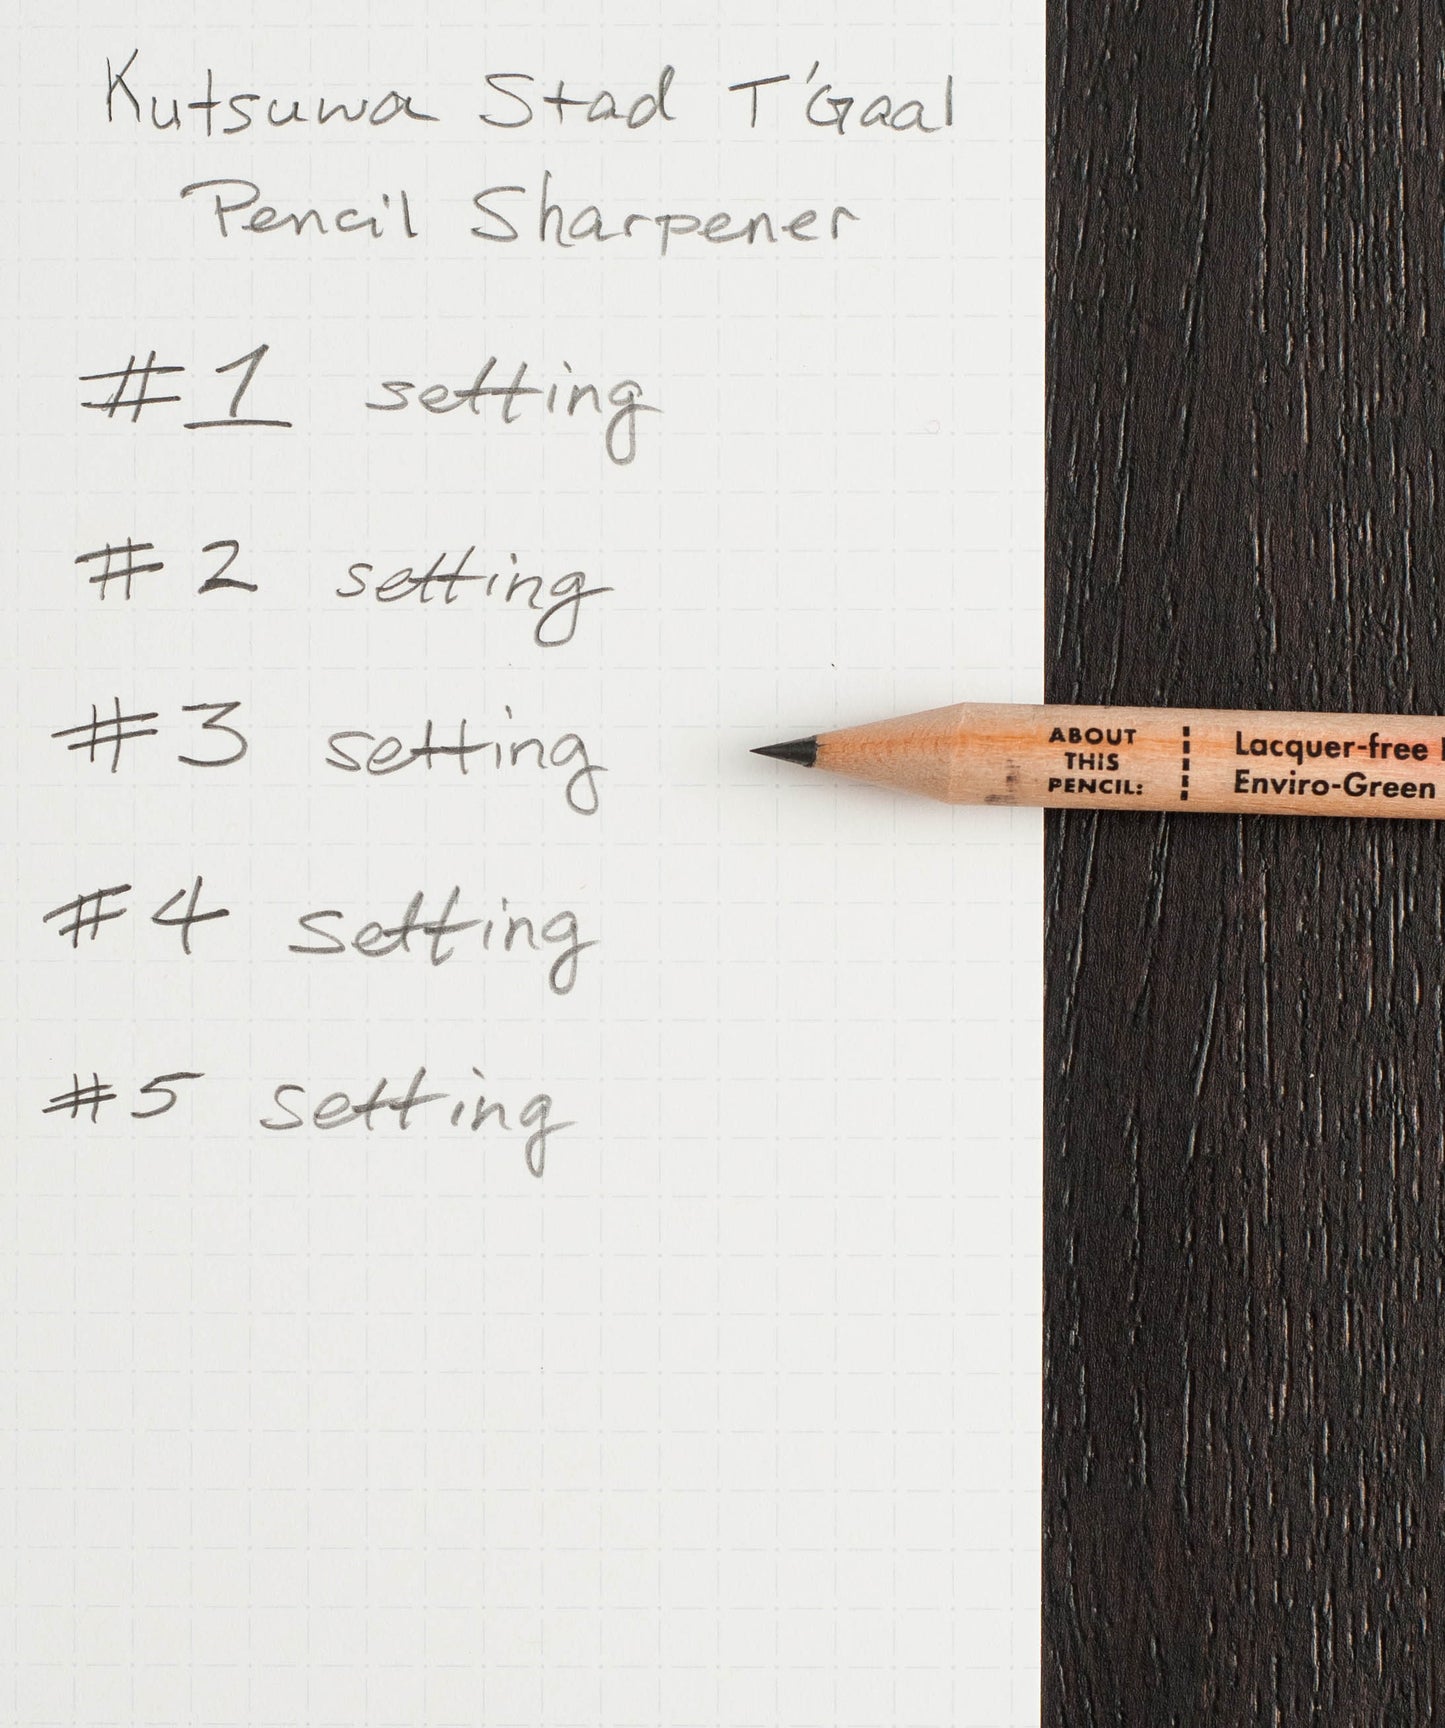 Kutsuwa Stad T'Gaal
Pencil Sharpener
#1 setting
#2 setting
#3 setting
#4 setting
#5 setting
ABOUT
THIS
PENCIL:
Lacquer-free
Enviro-Green